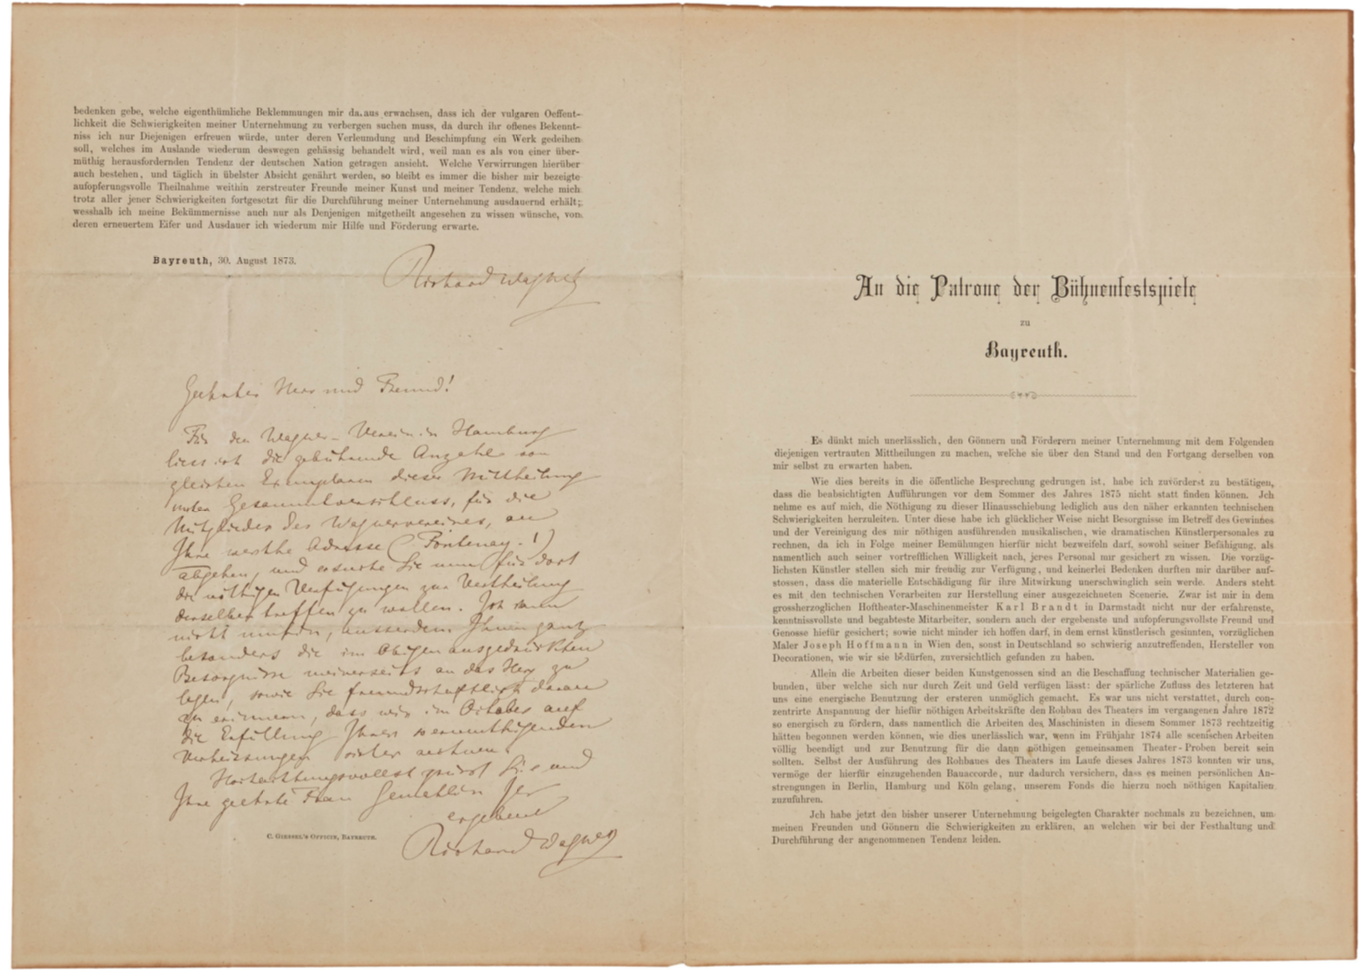 bedenken gebe, welche eigenthümliche Beklemmungen mir daraus erwachsen, dass ich der vulgaren Oeffent-
lichkeit die Schwierigkeiten meiner Unternehmung zu verbergen suchen muss, da durch ihr offenes Bekennt-
niss ich nur Diejenigen erfreuen würde, unter deren Verleumdung und Beschimpfung ein Werk gedeihen
soll, welches im Auslande wiederum deswegen gehässig behandelt wird, weil man es als von einer über-
müthig herausfordernden Tendenz der deutschen Nation getragen ansieht. Welche Verwirrungen hierüber
auch bestehen, und täglich in übelster Absicht genährt werden, so bleibt es immer die bisher mir bezeigte
aufopferungsvolle Theilnahme weithin zerstreuter Freunde meiner Kunst und meiner Tendenz, welche mich
trotz aller jener Schwierigkeiten fortgesetzt für die Durchführung meiner Unternehmung ausdauernd erhält;
wesshalb ich meine Bekümmernisse auch nur als Denjenigen mitgetheilt angesehen zu wissen wünsche, von
deren erneuertem Eifer und Ausdauer ich wiederum mir Hilfe und Förderung erwarte.
Bayreuth, 30. August 1873.
Richard Wagner
Geehrter Herr und Freund!
Für den Wagner-Verein in Hamburg
liess ich die gebührende Anzahl von
gleichen Exemplaren dieser Mittheilung
unter Gesammtverschluss, für die
Mitglieder des Wagnervereines, an
Ihre werthe Adresse (Fontenay!)
abgehen, und ersuche Sie nun für dort
die nöthigen Verfügungen zur Vertheilung
derselben treffen zu wollen. Ich kann
nicht umhin, ausserdem Ihnen ganz
besonders die im Obigen ausgedrückten
Besorgnisse meinerseits an das Herz zu
legen, sowie Sie freundschaftlich daran
zu erinnern, dass wir im October auf
die Erfüllung Ihrer
Verheissungen rechnen.
Hochachtungsvollst grüsst Sie und
Ihre geehrte Frau Gemahlin Ihr
ergebener
Richard Wagner
C. Giessel's Officin, Bayreuth.
An die Patrone der Bühnenfestspiele
zu
Bayreuth.
Es dünkt mich unerlässlich, den Gönnern und Förderern meiner Unternehmung mit dem Folgenden
diejenigen vertrauten Mittheilungen zu machen, welche sie über den Stand und den Fortgang derselben von
mir selbst zu erwarten haben.
Wie dies bereits in die öffentliche Besprechung gedrungen ist, habe ich zuvörderst zu bestätigen,
dass die beabsichtigten Aufführungen vor dem Sommer des Jahres 1875 nicht statt finden können. Ich
nehme es auf mich, die Nöthigung zu dieser Hinausschiebung lediglich aus den näher erkannten technischen
Schwierigkeiten herzuleiten. Unter diese habe ich glücklicher Weise nicht Besorgnisse im Betreff des Gewinnes
und der Vereinigung des mir nöthigen ausführenden musikalischen, wie dramatischen Künstlerpersonales zu
rechnen, da ich in Folge meiner Bemühungen hierfür nicht bezweifeln darf, sowohl seiner Befähigung, als
namentlich auch seiner vortrefflichen Willigkeit nach, jenes Personal mir gesichert zu wissen. Die vorzüg-
lichsten Künstler stellen sich mir freudig zur Verfügung, und keinerlei Bedenken durften mir darüber auf-
stossen, dass die materielle Entschädigung für ihre Mitwirkung unerschwinglich sein werde. Anders steht
es mit den technischen Verarbeiten zur Herstellung einer ausgezeichneten Scenerie. Zwar ist mir in dem
grossherzoglichen Hoftheater-Maschinenmeister Karl Brandt in Darmstadt nicht nur der erfahrenste,
kenntnissvollste und begabteste Mitarbeiter, sondern auch der ergebenste und aufopferungsvollste Freund und
Genosse hiefür gesichert; sowie nicht minder ich hoffen darf, in dem ernst künstlerisch gesinnten, vorzüglichen
Maler Joseph Hoffmann in Wien den, sonst in Deutschland so schwierig anzutreffenden, Hersteller von
Decorationen, wie wir sie bedürfen, zuversichtlich gefunden zu haben.
Allein die Arbeiten dieser beiden Kunstgenossen sind an die Beschaffung technischer Materialien ge-
bunden, über welche sich nur durch Zeit und Geld verfügen lässt: der spärliche Zufluss des letzteren hat
uns eine energische Benutzung der ersteren unmöglich gemacht. Es war uns nicht verstattet, durch con-
zentrirte Anspannung der hiefür nöthigen Arbeitskräfte den Rohbau des Theaters im vergangenen Jahre 1872
so energisch zu fördern, dass namentlich die Arbeiten des Maschinisten in diesem Sommer 1873 rechtzeitig
hätten begonnen werden können, wie dies unerlässlich war, wenn im Frühjahr 1874 alle scenischen Arbeiten
völlig beendigt und zur Benutzung für die dann nöthigen gemeinsamen Theater-Proben bereit sein
sollten. Selbst der Ausführung des Rohbaues des Theaters im Laufe dieses Jahres 1873 konnten wir uns,
vermöge der hierfür einzugehenden Bauaccorde, nur dadurch versichern, dass es meinen persönlichen An-
strengungen in Berlin, Hamburg und Köln gelang, unserem Fonds die hierzu noch nöthigen Kapitalien
zuzuführen.
Ich habe jetzt den bisher unserer Unternehmung beigelegten Charakter nochmals zu bezeichnen, um
meinen Freunden und Gönnern die Schwierigkeiten zu erklären, an welchen wir bei der Festhaltung und
Durchführung der angenommenen Tendenz leiden.